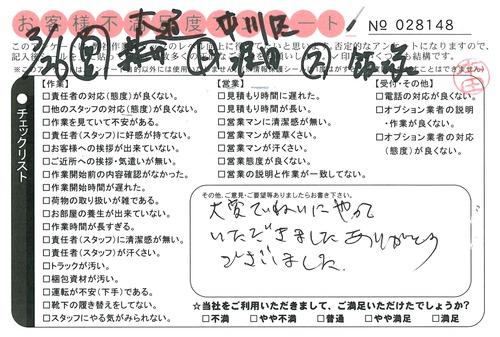 お客様不満足度アンケート
No 028148
3/26 金
チェックリスト
【作業】
□責任者の対応(態度)が良くない。
□他のスタッフの対応(態度)が良くない。
□作業を見ていて不安がある。
□責任者(スタッフ)に好感が持てない。
□お客様への挨拶が出来ていない。
□ご近所への挨拶・気遣いが無い。
□作業開始前の内容確認がなかった。
□作業開始時間が遅れた。
□荷物の取り扱いが雑である。
□お部屋の養生が出来ていない。
□作業時間が長すぎる。
□責任者(スタッフ)に清潔感が無い。
□責任者(スタッフ)が汗くさい。
□トラックが汚い。
□梱包資材が汚い。
□運転が不安(下手)である。
□靴下の履き替えをしてない。
□スタッフにやる気がみられない。
【営業】
□見積もり時間に遅れた。
□見積もり時間が長い。
□営業マンに清潔感が無い。
□営業マンが煙草くさい。
□営業マンが汗くさい。
□営業態度が良くない。
□営業の説明と作業が一致してない。
【受付・その他】
□電話の対応が良くない。
□オプション業者の説明
・作業が良くない。
□オプション業者の対応
(態度)が良くない。
その他、ご意見・ご要望等ありましたらお書き下さい。
大変ていねいにやって
いただきましたありがとう
ございました。
☆当社をご利用いただきまして、ご満足いただけたでしょうか?
□不満 □やや不満 □普通 □やや満足 □満足